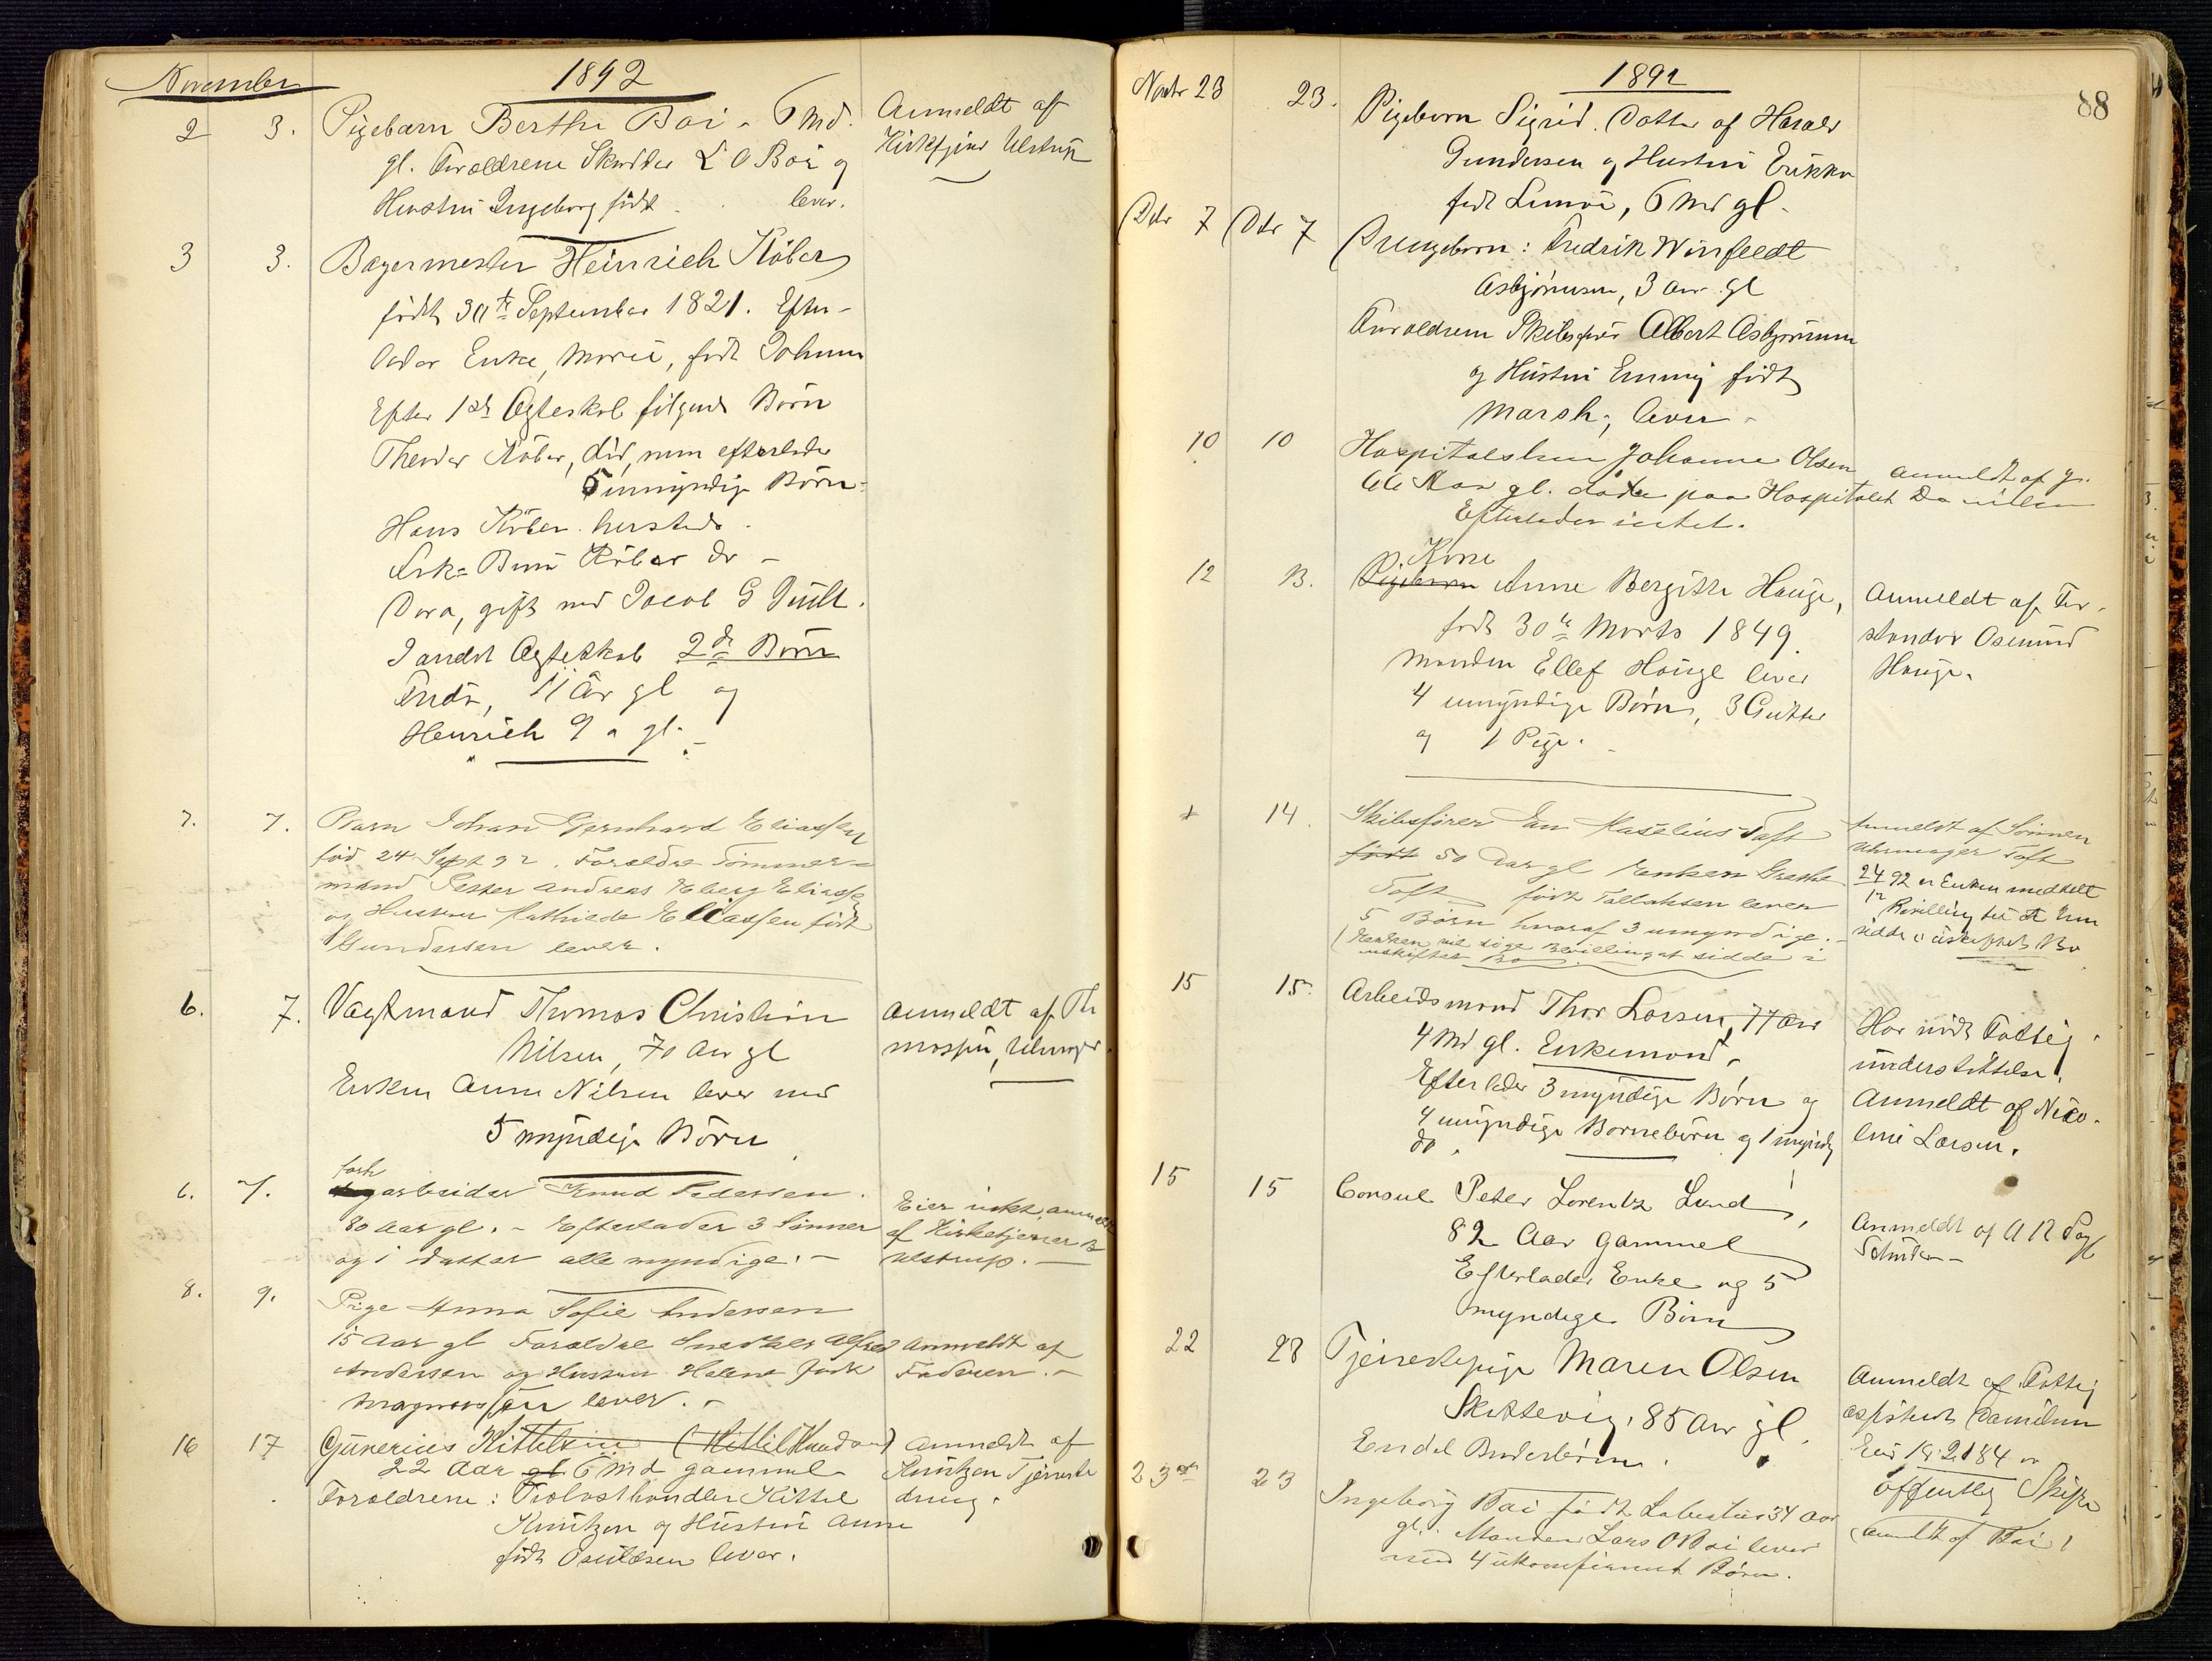 November
1892
2 3. Pigebarn Berthe Boi - 6 Md.
gl. Foroldrene Skrædder L O Boi og
Hustru Ingeborg født lever.
Anmeldt af
Kirketjener Ulstrup
3 3. Bagermester Heinrich Köber
født 30te September 1821. Efter-
lader Enke, Marie, født
Efter 1ste Ægteskab følgende Børn
Theodor Köber, død, men efterlader
5 umyndige Børn
Hans Köber hersteds.
Köber do -
Dora, gift med Jacob G Juell.
I andet Ægteskab 2de Børn
11 Aar gl og
Heinrich 9 a gl.
7. 7. Barn Johan Gernhard Eliassen
fød 24 Sept 92. Forældre Tømmer-
mand Petter Andreas Eliassen
og Hustru Mathilde Eliassen født
Gundersen lever.
6. 7. Vagtmand Thomas Christian
Nilsen, 70 Aar gl
Enken Anne Nilsen lever med
5 myndige Børn
Anmeldt af Th
6. 7. forh
arbeider Knud Pedersen.
80 Aar gl. - Efterlader 3 Sønner
og 1 Datter alle myndige. -
Eier intet, anmeldt
af Kirketjener B
Ulstrup. -
8. 9. Pige Anna Sofie Andersen
15 Aar gl Forældre Snedker Alfred
Andersen og Hustru Helene født
Magnussen lever. -
Anmeldt af
Faderen. -
16 17 Gunerius Kittelsen (Kittil Knudsen)
22 Aar gl 6 Md gammel
Foroldrene: Kittel
Knutzen og Hustru Anne
født lever.
Anmeldt af
Knutzen Tjeneste
dreng.
1892
88
Novbr 23 23. Pigebarn Sigrid. Datter af Harald
Gundersen og Hustru Erikka
født , 6 Md gl.
Dbr 7 Dbr 7 Drengebarn: Fredrik Winfeldt
Asbjørnsen, 3 Aar gl
Foroldrene Skibsfører Albert Asbjørnsen
og Hustru Emmy født
Marsh, lever -
10 10 Hospitalslem Johanne Olsen
66 Aar gl. døde paa Hospitalet
Efterlader intet.
Anmeldt af
12 13. Kone
Pigebarn Anne Bergitte Hauge,
født 30te Marts 1849.
Manden Ellef Hauge lever
4 umyndige Børn, 3 Gutter
og 1 Pige.
Anmeldt af For-
stander Osmund
Hauge.
14. Skibsfører Jan Toft
født 50 Aar gl Enken Grethe
Toft født Tallaksen lever
5 Børn hvoraf 3 umyndige. -
(Enken vil søge Bevilling at sidde i
uskiftet Bo
Anmeldt af Sønnen
Uhrmager Toft
24/12 92 er Enken meddelt
Bevilling til at hen
sidde i uskiftet Bo
15 15. Arbeidsmand Thor Larsen, 77 Aar
4 Md gl. Enkemand.
Efterlader 3 myndige Børn og
4 umyndige Børnebørn og 1 myndig
do.
Har nydt Fattig
understøttelse.
Anmeldt af Nico-
line Larsen.
15 15 Consul Peter Lorentz Lund,
82 Aar gammel
Efterlader Enke og 5
myndige Børn
Anmeldt af
22 23 Tjenestepige Maren Olsen
Skottevig, 85 Aar gl.
Endel Broderbørn.
Anmeldt af Fattig
Danielsen
offentlig Skifte
23de 23 Ingeborg Boi født 34 Aar
gl. Manden Lars O Boi lever
med 4 ukonfirmert Børn.
Anmeldt af Boi